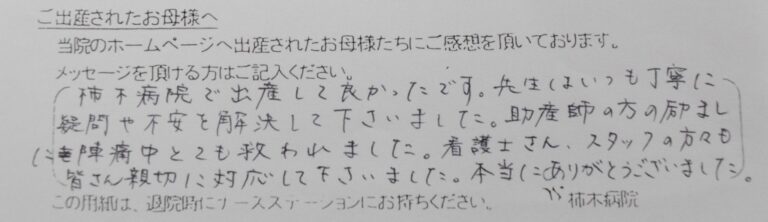 ご出産されたお母様へ
当院のホームページへ出産されたお母様たちにご感想を頂いております。
メッセージを頂ける方はご記入ください。
柿木病院で出産して良かったです。先生はいつも丁寧に
疑問や不安を解決して下さいました。助産師の方の励まし
に陣痛中とても救われました。看護士さん、スタッフの方々も
皆さん親切に対応して下さいました。本当にありがとうございました。
この用紙は、退院時にナースステーションにお持ちください。 柿木病院